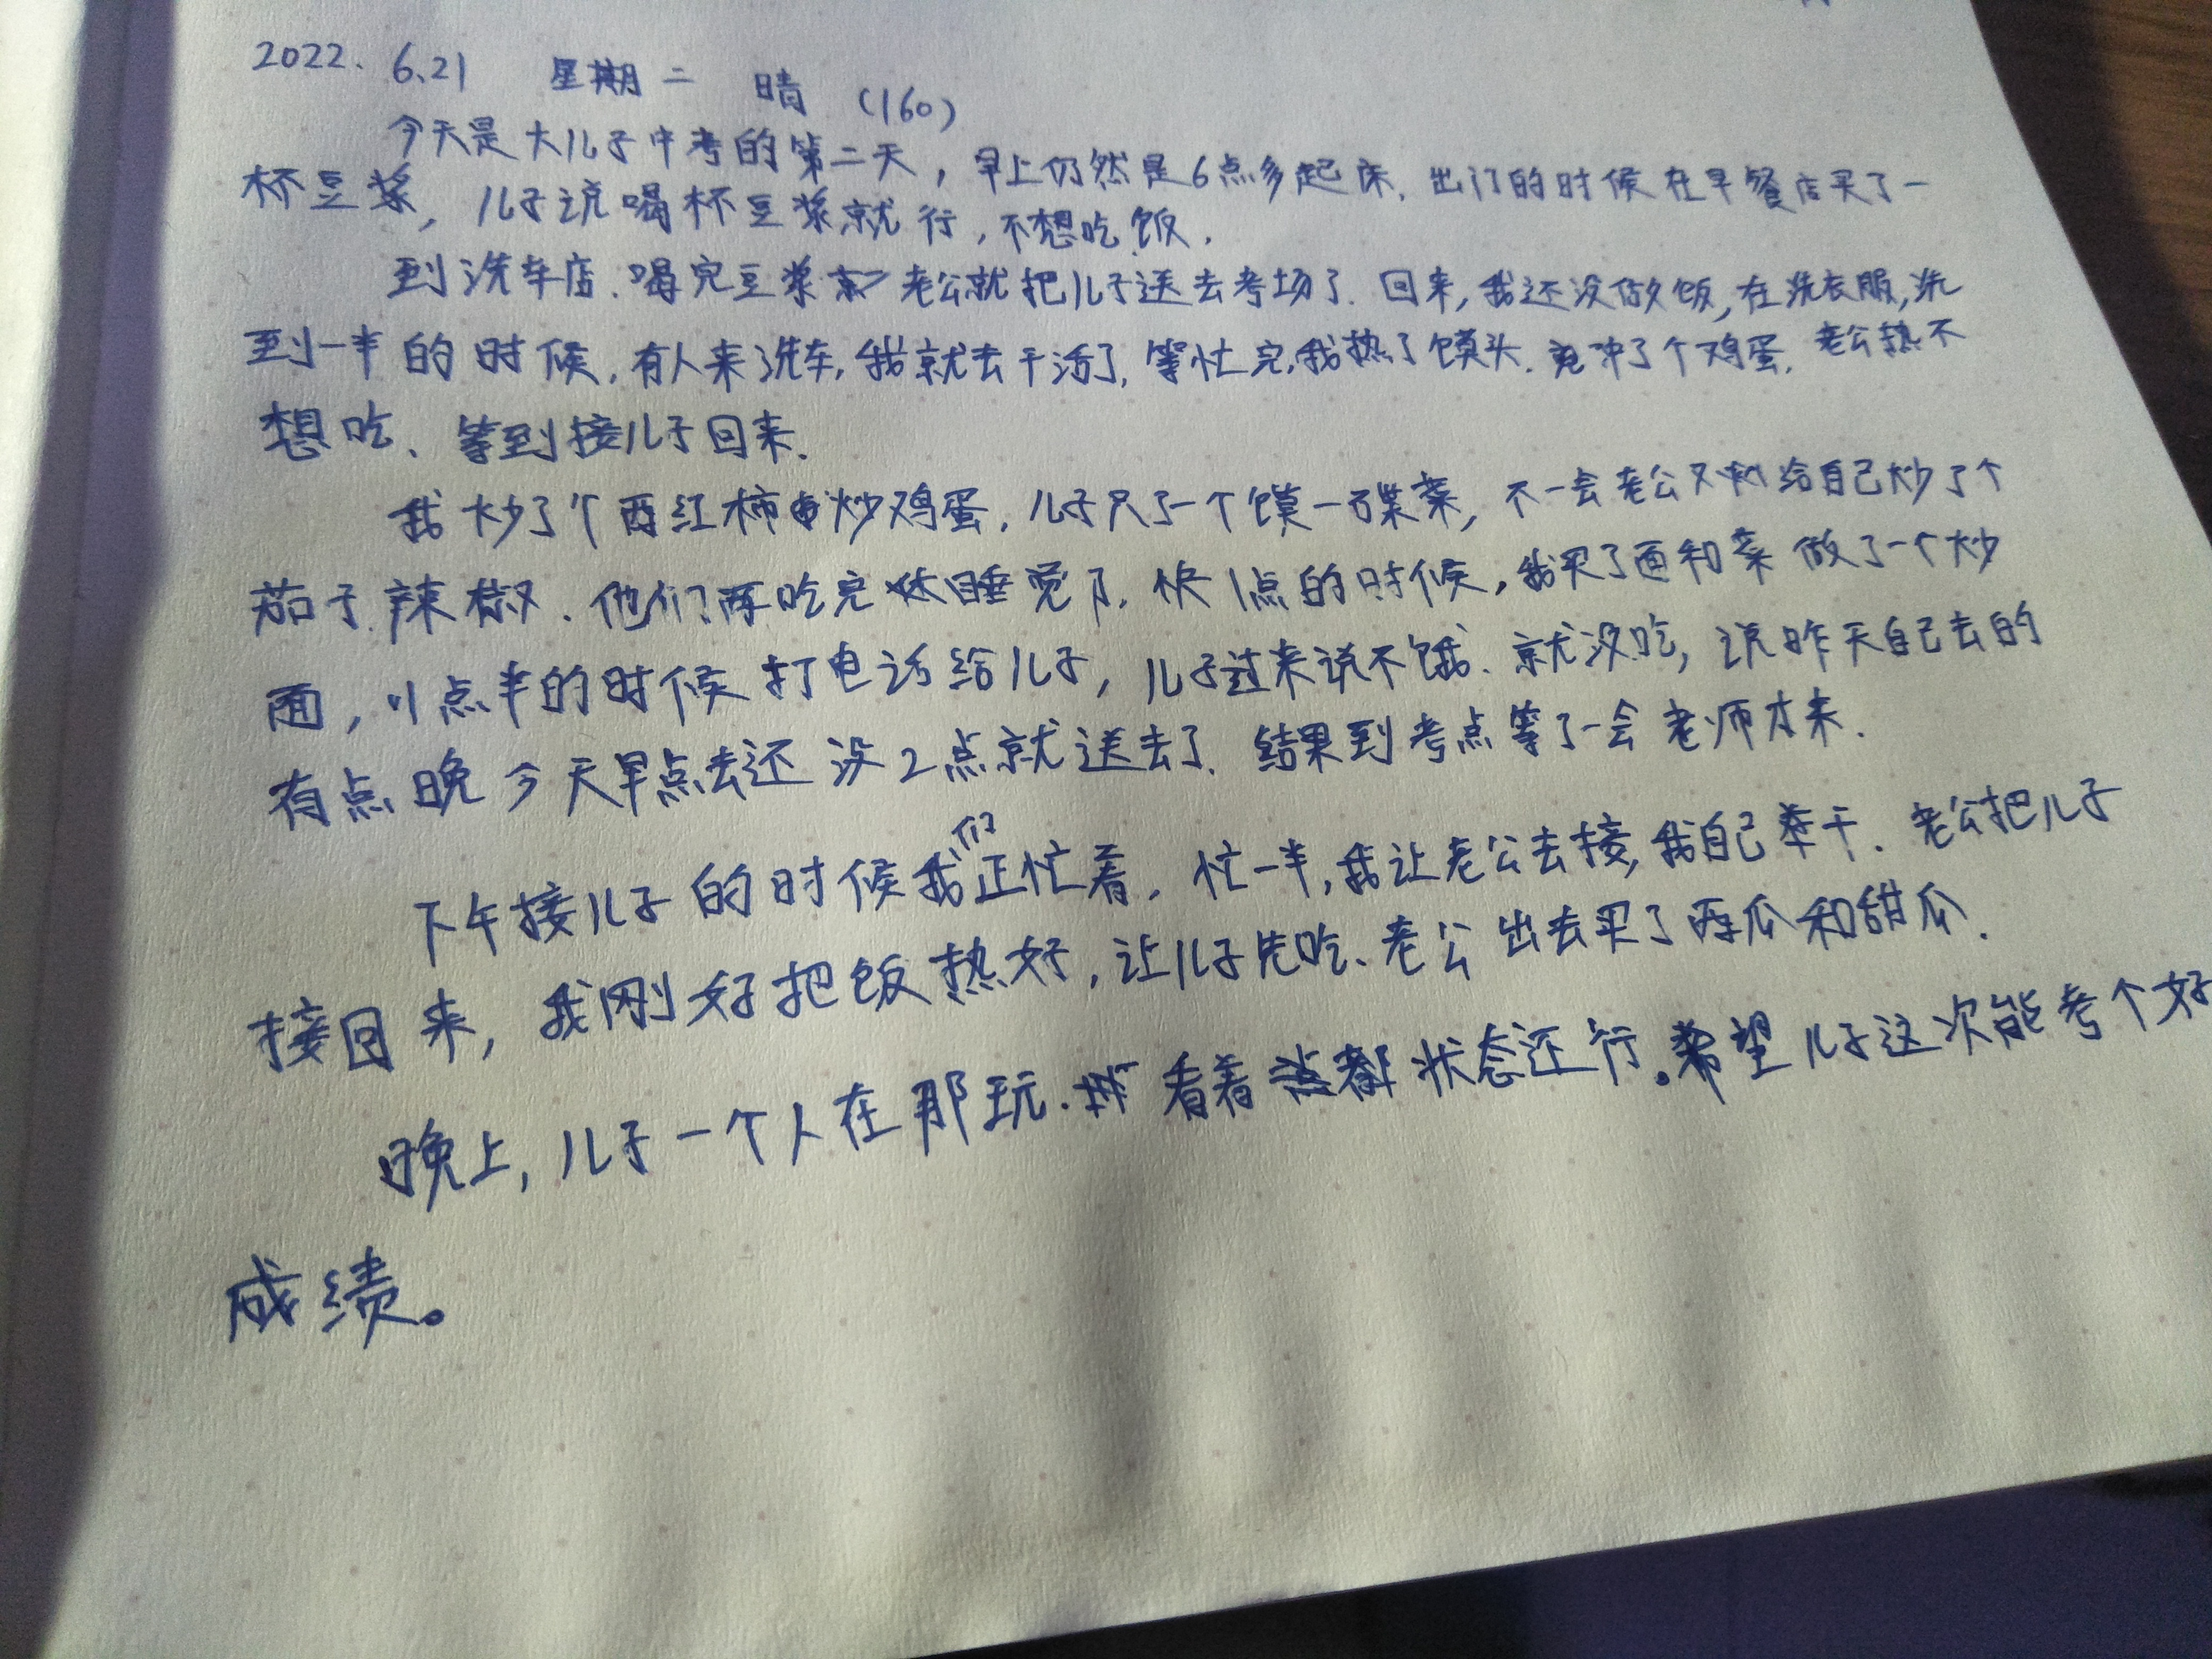 2022. 6.21 星期二 晴 (160)
今天是大儿子中考的第二天，早上仍然是6点多起床，出门的时候在早餐店买了一
杯豆浆，儿子说喝杯豆浆就行，不想吃饭.
到洗车店.喝完豆浆老公就把儿子送去考场了.回来,我还没做饭,在洗衣服,洗
到一半的时候,有人来洗车,我就去干活了,等忙完,我热了馍头.冲了个鸡蛋.老公热不
想吃、等到接儿子回来.
我炒了个西红柿炒鸡蛋,儿子只了一个馍一碟菜,不一会老公又给自己炒了个
茄子辣椒.他们两吃完睡觉了,快1点的时候,我买了面和菜做了一个炒
面,1点半的时候打电话给儿子,儿子过来说不饿.就没吃,说昨天自己去的
有点晚今天早点去还没2点就送去了.结果到考点等了一会老师才来.
下午接儿子的时候我们正忙着.忙一半,我让老公去接,我自己来干.老公把儿子
接回来,我刚好把饭热好,让儿子先吃、老公出去买了西瓜和甜瓜.
晚上,儿子一个人在那玩.看着状态还行。希望儿子这次能考个好
成绩。